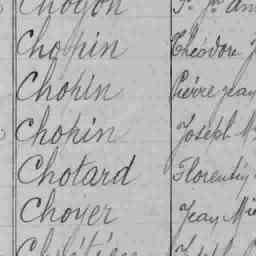 Choyon
Chopin Théodore
Chopin Pierre Jean
Chopin Joseph
Chotard Florentin
Choyer Jean
Chrétien